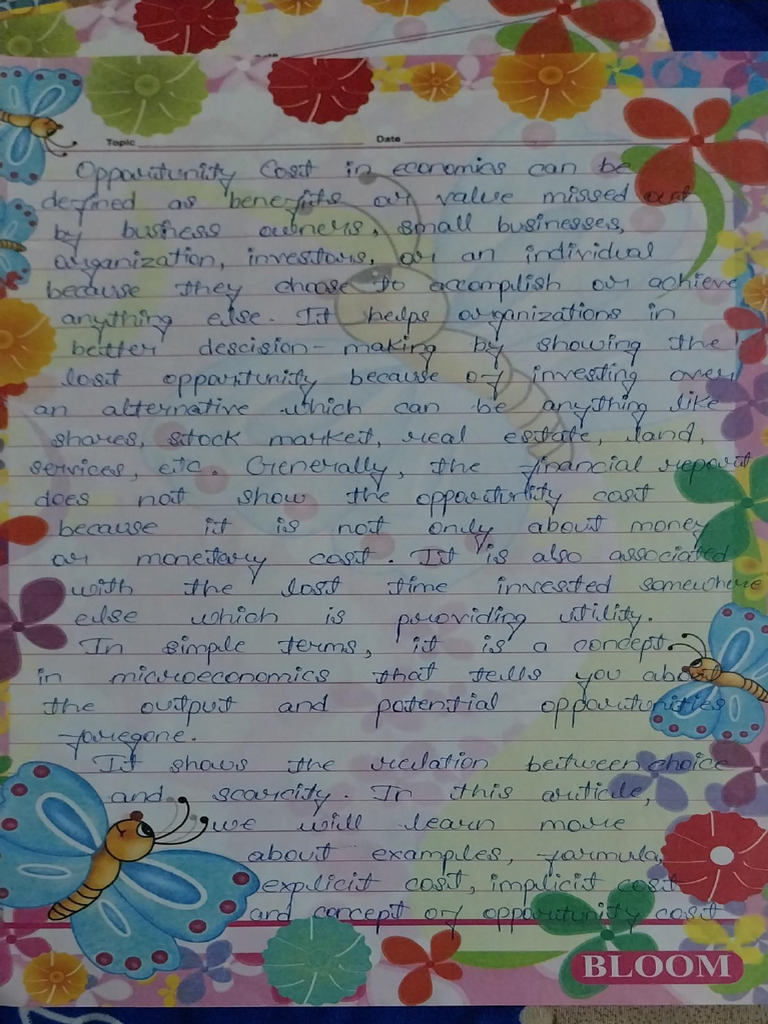 Topic Date
Opportunity Cost in economics can be
defined as benefits or value missed out
by business owners, small businesses,
organization, investors, or an individual
because they choose to accomplish or achieve
anything else. It helps organizations in
better descision-making by showing the
lost opportunity because of investing over
an alternative which can be anything like
shares, stock market, real estate, land,
services, etc. Generally, the financial report
does not show the opportunity cost
because it is not only about money
or monetary cost. It is also associated
with the lost time invested somewhere
else which is providing utility.
In simple terms, it is a concept
in microeconomics that tells you about
the output and potential opportunities
foregone.
It shows the relation between choice
and scarcity. In this article,
we will learn more
about examples, formula,
explicit cost, implicit cost
and concept of opportunity cost
BLOOM